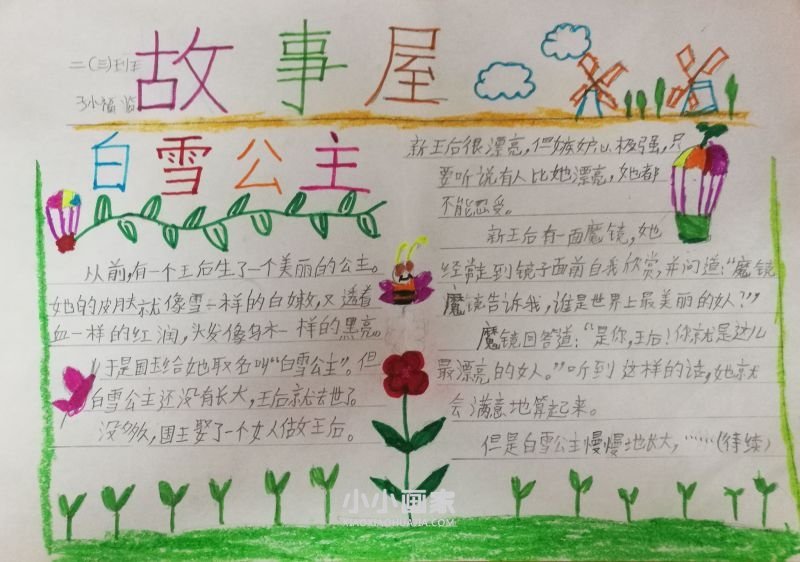 故事屋
二(三)班
白雪公主
从前,有一个王后生了一个美丽的公主。
她的皮肤就像雪一样的白嫩,又透着
血一样的红润,头发像乌木一样的黑亮。
于是国王给她取名叫“白雪公主”。但
白雪公主还没有长大,王后就去世了。
没多久,国王娶了一个女人做王后。
新王后很漂亮,但嫉妒心极强,只
要听说有人比她漂亮,她都
不能忍受。
新王后有一面魔镜,她
经常走到镜子面前自我欣赏,并问道:“魔镜
魔镜告诉我,谁是世界上最美丽的女人?”
魔镜回答道:“是你,王后!你就是这儿
最漂亮的女人。”听到这样的话,她就
会满意地笑起来。
但是白雪公主慢慢地长大,……(待续)
小小画家
XIAOXIAOHUAJIA.COM